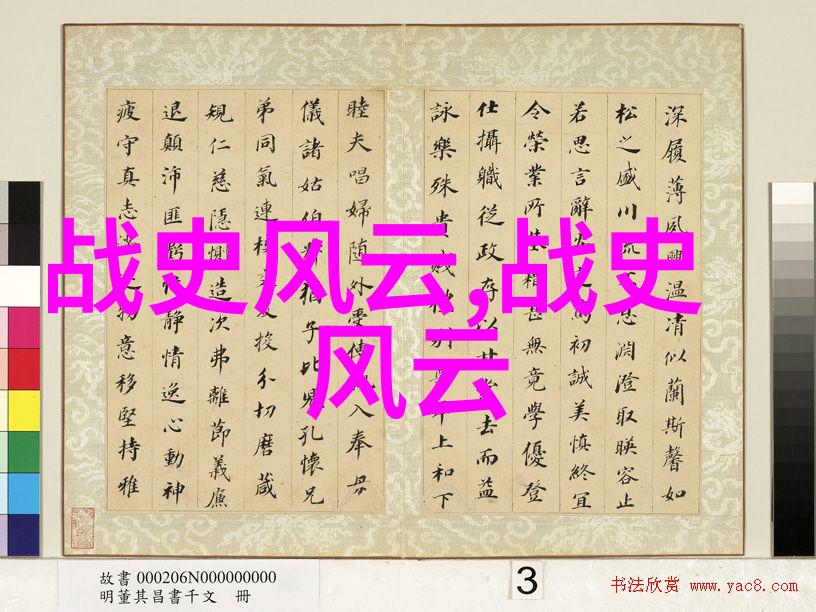 深履薄夙興溫凊似蘭斯馨如
松之盛川流不息淵澄取暎容止
若思言辭安定篤初誠美慎終宜
令榮業所基籍甚無竟學優登
仕攝職從政存以甘棠去而益
詠樂殊貴賤禮別尊卑上和下
睦夫唱婦隨外受傅訓入奉母
儀諸姑伯叔猶子比兒孔懷兄
弟同氣連枝交友投分切磨箴
規仁慈隱惻造次弗離節義廉
退顛沛匪虧性靜情逸心動神
疲守真志滿逐物意移堅持雅
战史风云,战史
风云
故書 000206N000000000
明董其昌書千文 冊
3
书法欣赏 www.yac8.com